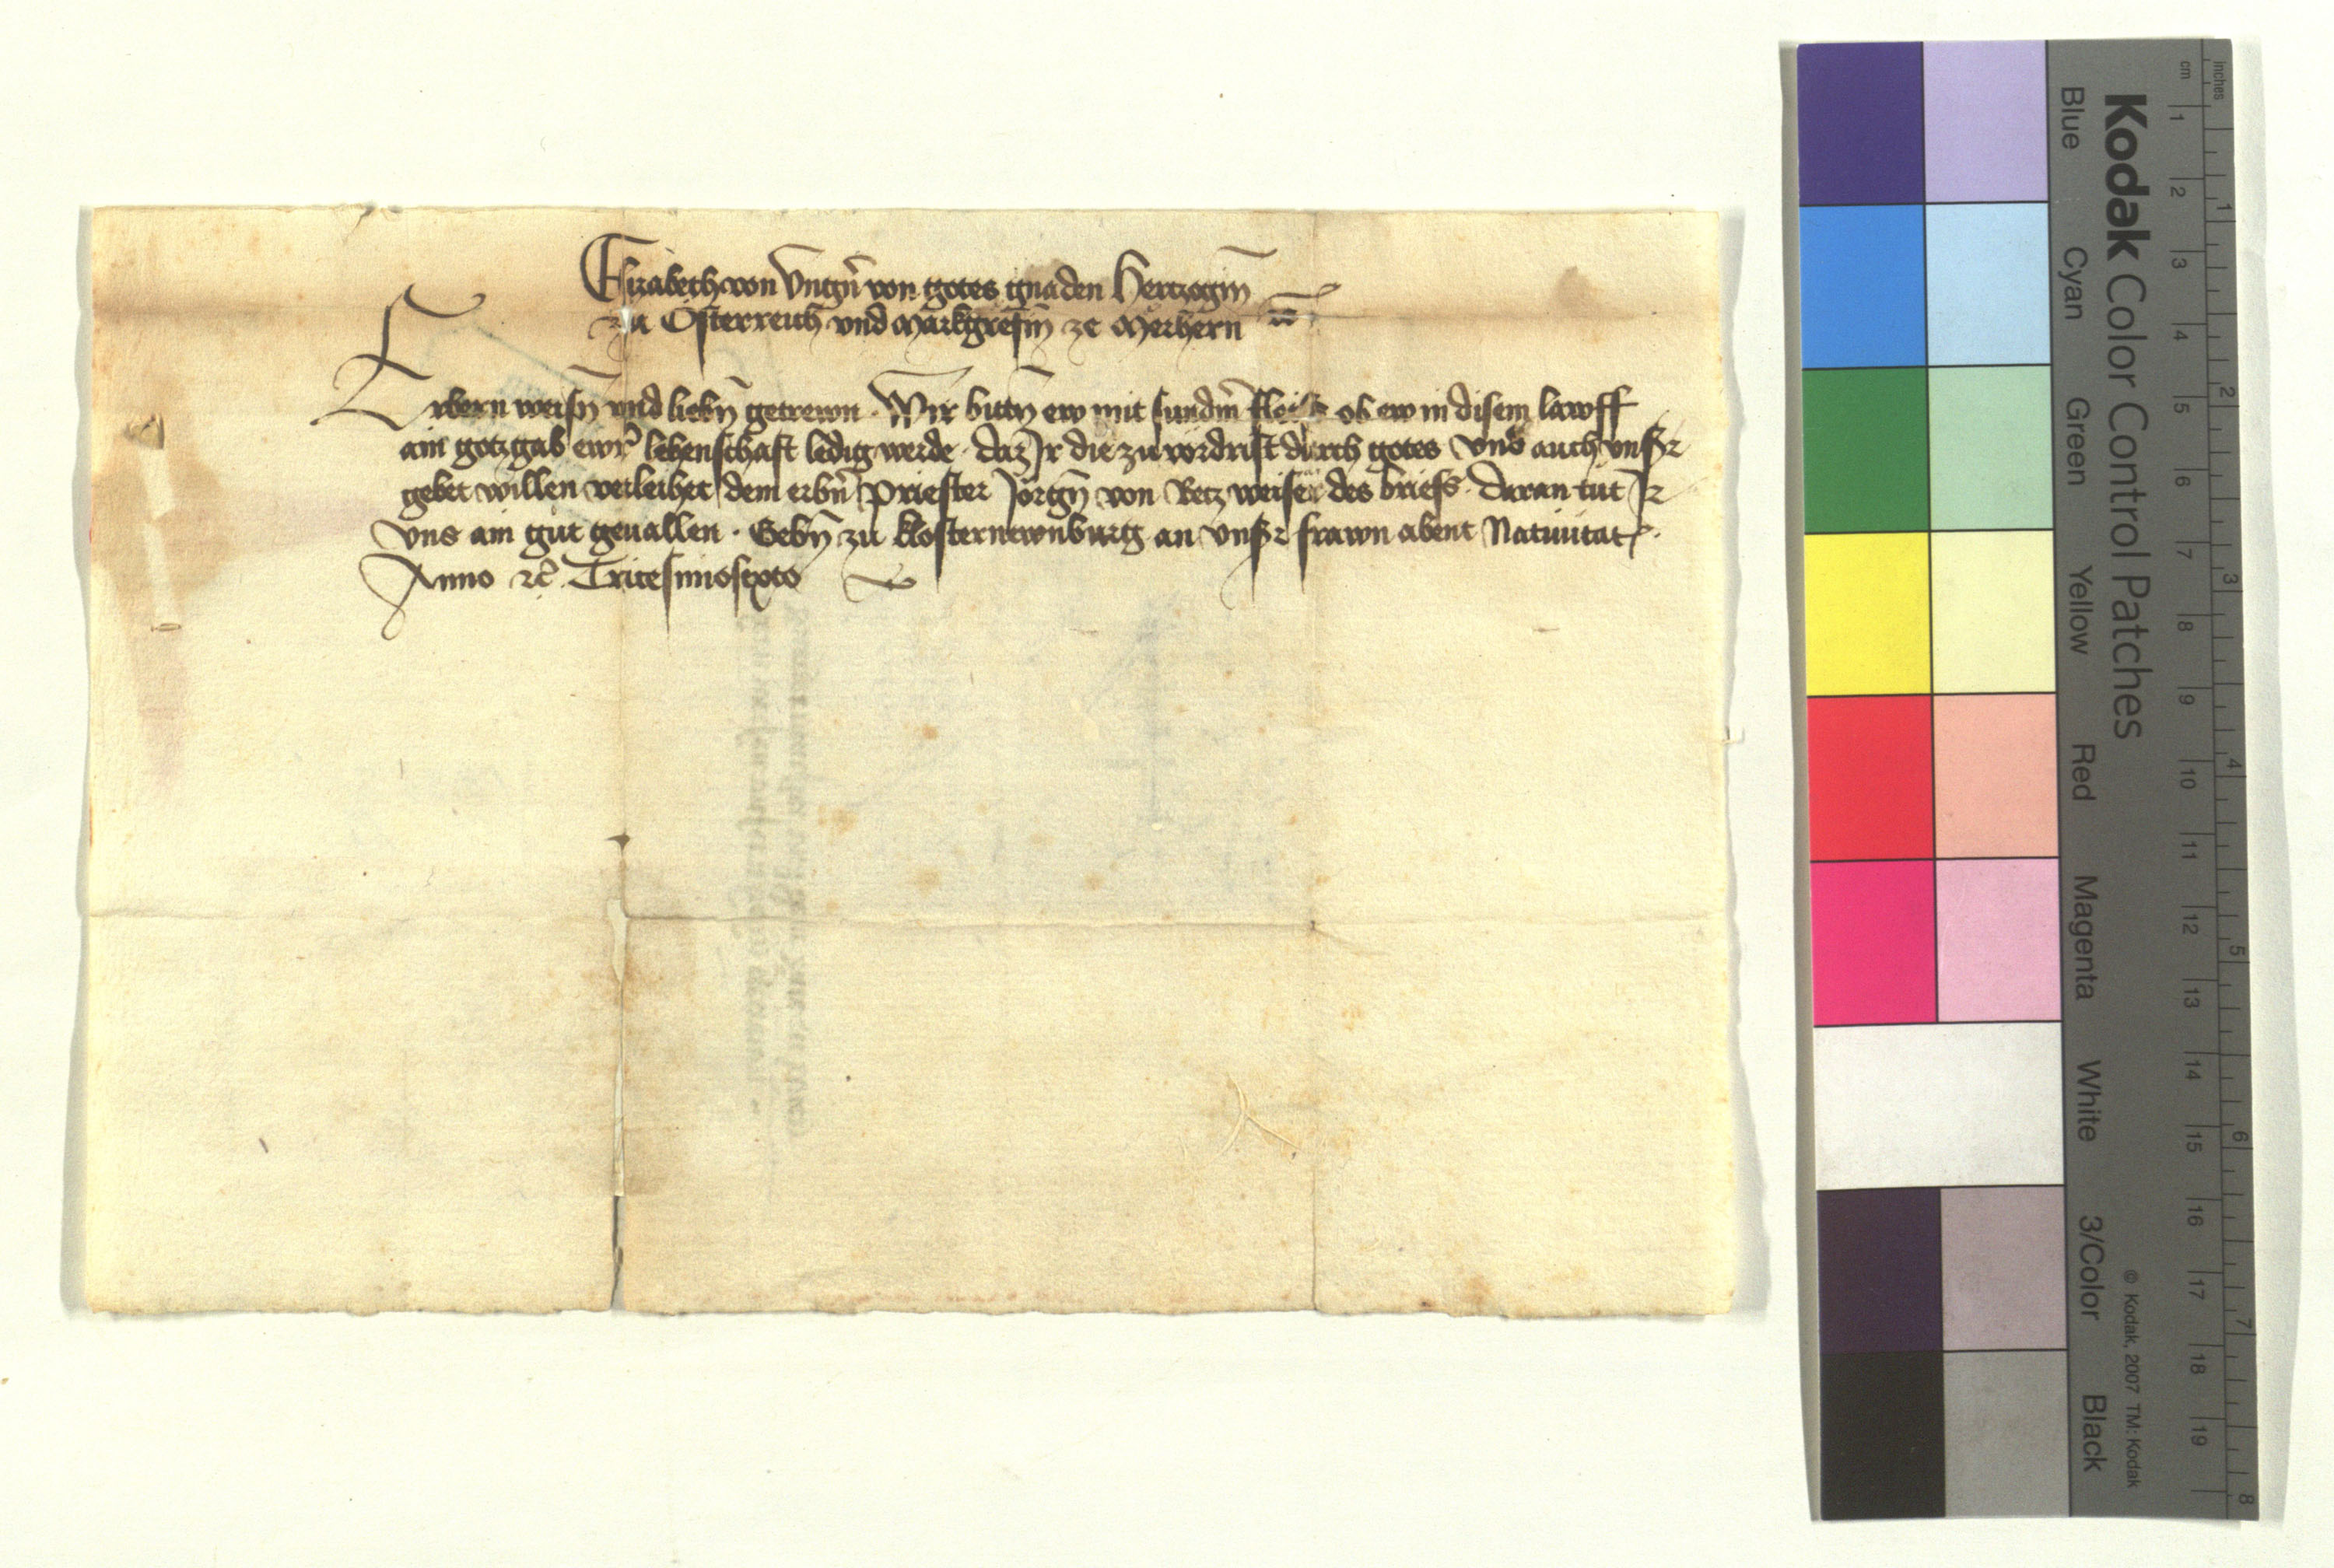 Elizabeth von Vngñ von gotes gnaden Hertzogiñ
zu Österreich vnd Markgrefiñ ze Merhern ⁊c̃
Erbern weisñ vnd liebñ getrewn. Wir bittñ ew mit sundrñ fleiss ob ew in disem lawff
ain gotzgab ewr̃ lehenschaft ledig werde. daz Ir die zu vordrist durch gotes vnd auch vnsr
gebet willen verleihet dem erbñ priester Jörgñ von Retz weiser des briefs. Daran tut Ir
vns ain gut geuallen. Gebñ zu Klosternewnburg an vnsr frawn abent Natiuitat.
Anno ⁊c̃. Tricesimosexto
Kodak Color Control Patches
Blue Cyan Green Yellow Red Magenta White 3/Color Black
© Kodak, 2007 TM: Kodak
cm 1 2 3 4 5 6 7 8 9 10 11 12 13 14 15 16 17 18 19
inches 1 2 3 4 5 6 7 8